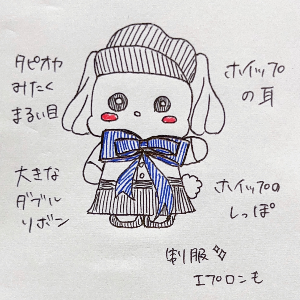 タピオカ
みたく
まるい目
ホイップ
の耳
大きな
ダブル
リボン
ホイップの
しっぽ
制服
エプロンも